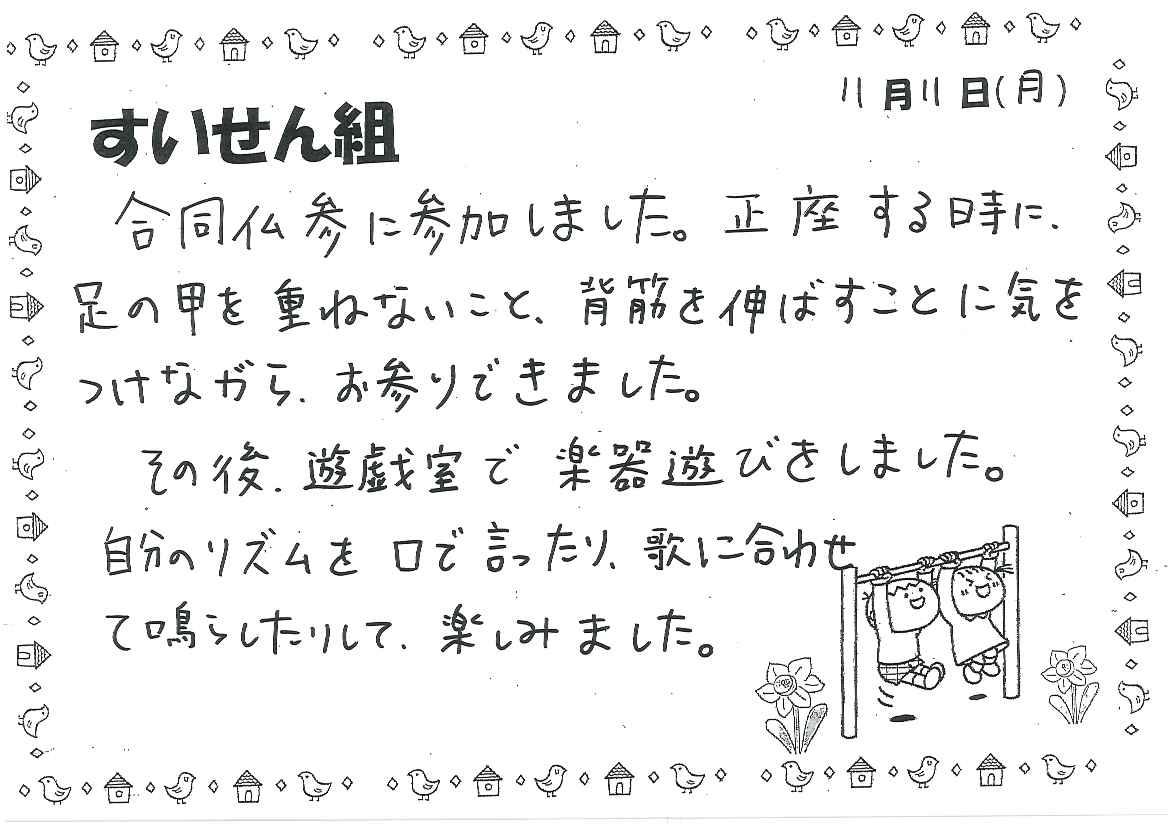 11月11日(月)
すいせん組
合同仏参に参加しました。正座する時に、
足の甲を重ねないこと、背筋を伸ばすことに気を
つけながら、お参りできました。
その後、遊戯室で楽器遊びをしました。
自分のリズムを口で言ったり、歌に合わせ
て鳴らしたりして、楽しみました。